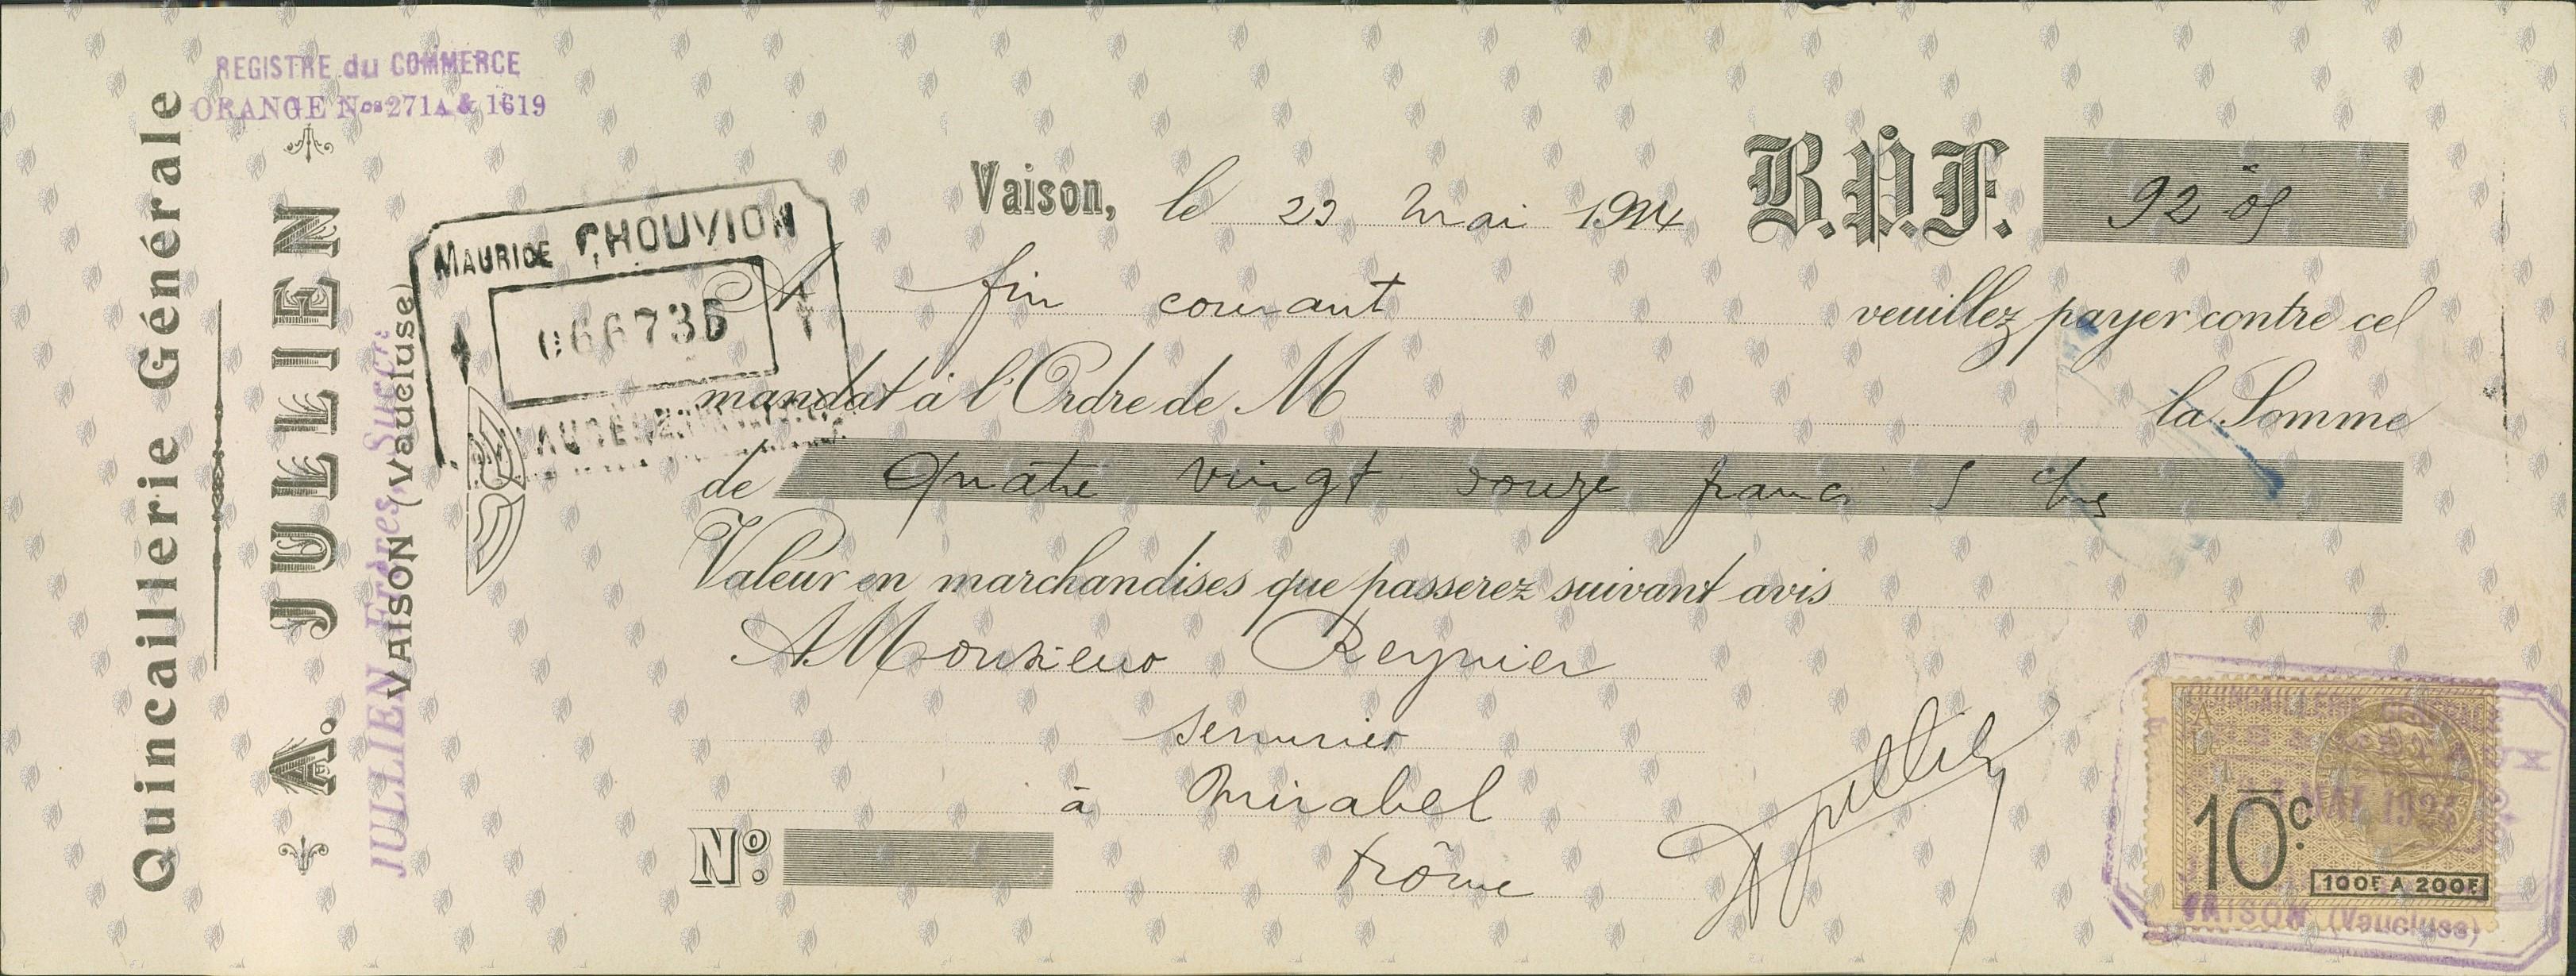 REGISTRE du COMMERCE
ORANGE Nos 271A & 1619
Quincaillerie Générale
A. JULLIEN
JULLIEN Frères Succrs
VAISON (Vaucluse)
MAURICE CHOUVION
Vaison, le 22 Mai 1924 B.P.F. 92 05
A fin courant veuillez payer contre cet
mandat à l'Ordre de M la Somme
de Quatre vingt douze francs 5 cmes
Valeur en marchandises que passerez suivant avis
A Monsieur Reynier
serrurier
à Mirabel
Drôme
No.
QUINCAILLERIE GENERALE
MAI 192
10c.
100F A 200F
VAISON (Vaucluse)